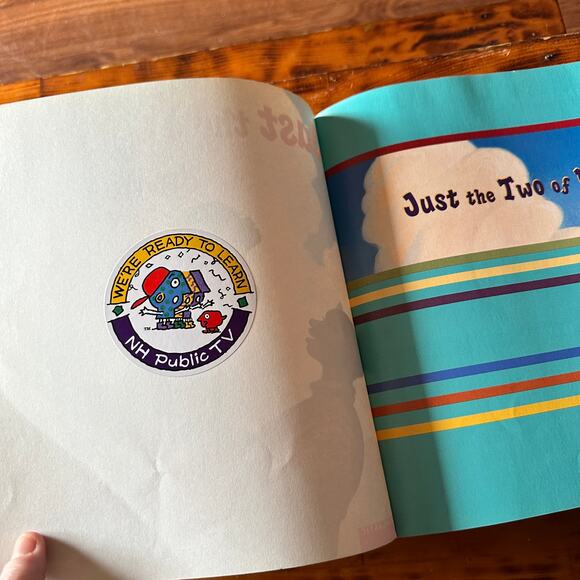 WE'RE READY TO LEARN
TM
NH Public TV
Just the Two of